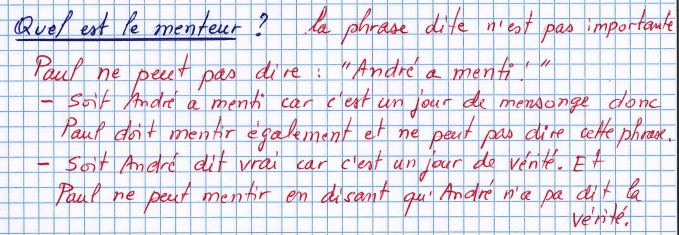 Quel est le menteur ? la phrase dite n'est pas importante
Paul ne peut pas dire : "André a menti !"
- Soit André a menti car c'est un jour de mensonge donc
Paul doit mentir également et ne peut pas dire cette phrase.
- Soit André dit vrai car c'est un jour de vérité. Et
Paul ne peut mentir en disant qu'André n'a pa dit la
vérité.